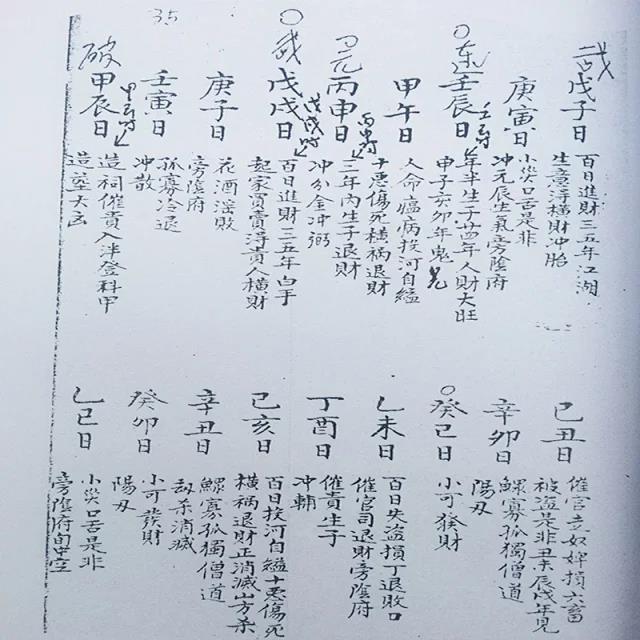 35
戊子日
百日進財三五年江湖
生意得橫財冲胎
庚寅日
小災口舌是非
冲元辰生氣旁陰府
壬辰日
年半生子廿四年人財大旺
甲子亥卯年鬼
甲午日
十惡傷死橫禍退財
人命瘟病投河自縊
丙申日
三年內生子退財
冲分金冲弼
戊戌日
百日進財三五年白手
起家買賣得貴人橫財
庚子日
花酒淫敗
旁陰府
壬寅日
孤寡冷退
冲散
破
甲辰日
造祠催貴人泮登科甲
造葬大玄
己丑日
催官丟奴婢損六畜
被盜是非丑未辰戌年見
辛卯日
鰥寡孤獨僧道
陽刃
癸巳日
小可發財
乙未日
百日失盜損丁退敗口
催官司退財旁陰府
丁酉日
催貴生子
冲輔
己亥日
百日投河自縊十惡傷死
橫禍退財正消滅山方杀
辛丑日
鰥寡孤獨僧道
劫杀消滅
癸卯日
小可發財
陽刃
乙巳日
小災口舌是非
旁陰府自中空